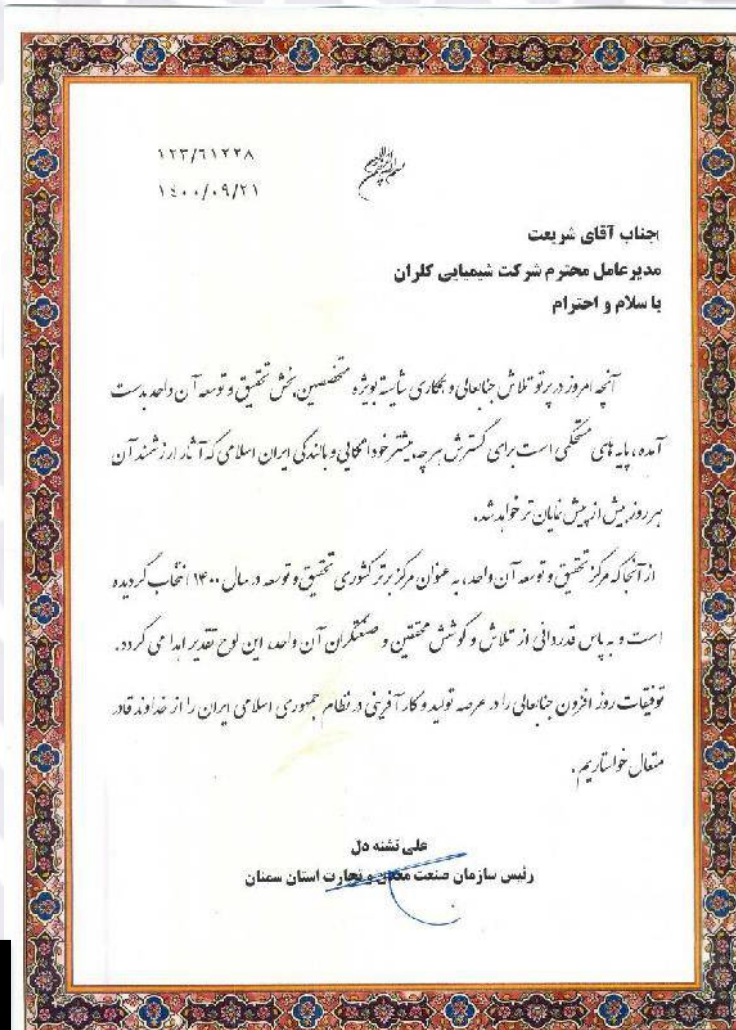 بسم الله الرحمن الرحیم
۱۲۳/۶۱۲۲۸
۱۴۰۰/۰۹/۲۱
جناب آقای شریعت
مدیرعامل محترم شرکت شیمیایی کلران
با سلام و احترام
آنچه امروز در پرتو تلاش جنابعالی و همکاری شایسته بویژه متخصصین بخش تحقیق و توسعه آن واحد بدست
آمده، پایه های مستحکمی است برای گسترش هر چه بیشتر خوداتکایی و بالندگی ایران اسلامی که آثار ارزشمند آن
هر روز بیش از پیش نمایان تر خواهد شد.
از آنجا که مرکز تحقیق و توسعه آن واحد، به عنوان مرکز برتر کشوری تحقیق و توسعه در سال ۱۴۰۰ انتخاب گردیده
است و به پاس قدردانی از تلاش و کوشش محققین و صنعتگران آن واحد، این لوح تقدیر اهدا می گردد.
توفیقات روز افزون جنابعالی را در عرصه تولید و کارآفرینی در نظام جمهوری اسلامی ایران را از خداوند قادر
متعال خواستاریم.
علی تشنه دل
رئیس سازمان صنعت معدن و تجارت استان سمنان